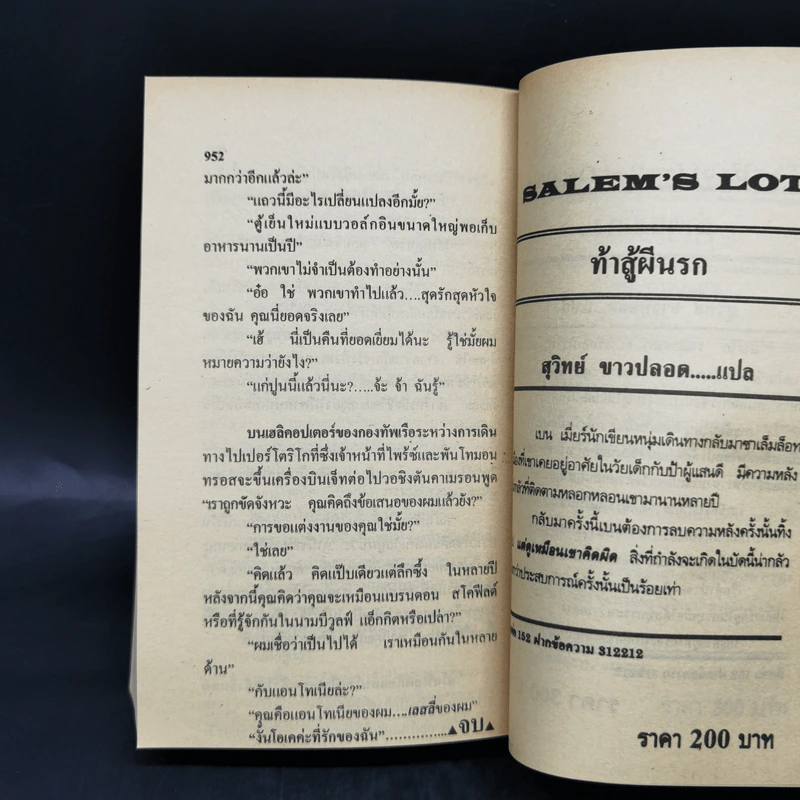 952
มากกว่าอีกแล้วล่ะ”
“แถวนี้มีอะไรเปลี่ยนแปลงอีกมั้ย?”
“ตู้เย็นใหม่แบบวอล์กอินขนาดใหญ่พอเก็บ
อาหารนานเป็นปี”
“พวกเขาไม่จำเป็นต้องทำอย่างนั้น”
“อ๋อ ใช่ พวกเขาทำไปแล้ว....สุดรักสุดหัวใจ
ของฉัน คุณนี่ยอดจริงเลย”
“เฮ้ นี่เป็นคืนที่ยอดเยี่ยมได้นะ รู้ใช่มั้ยผม
หมายความว่ายังไง?”
“แก่ปูนนี้แล้วนี่นะ?.....จ้ะ จ้า ฉันรู้”
บนเฮลิคอปเตอร์ของกองทัพเรือระหว่างการเดิน
ทางไปเปอร์โตริโกที่ซึ่งเจ้าหน้าที่ไพร้ซ์และพันโทมอน
ทรอสจะขึ้นเครื่องบินเจ็ทต่อไปวอชิงตันคาเมรอนพูด
“เราถูกขัดจังหวะ คุณคิดถึงข้อเสนอของผมแล้วยัง?”
“การขอแต่งงานของคุณใช่มั้ย?”
“ใช่เลย”
“คิดแล้ว คิดแป๊บเดียวแต่ลึกซึ้ง ในหลายปี
หลังจากนี้คุณคิดว่าคุณจะเหมือนแบรนดอน สโคฟีลด์
หรือที่รู้จักกันในนามบีวูลฟ์ แอ็กกิตหรือเปล่า?”
“ผมเชื่อว่าเป็นไปได้ เราเหมือนกันในหลาย
ด้าน”
“กับแอนโทเนียล่ะ?”
“คุณคือแอนโทเนียของผม....เลสลี่ของผม”
“งั้นโอเคค่ะที่รักของฉัน”...............▲จบ▲
SALEM'S LOT
ท้าสู้ผีนรก
สุวิทย์ ขาวปลอด.....แปล
เบน เมี่ยร์นักเขียนหนุ่มเดินทางกลับมาซาเล็มล็อท
ที่เขาเคยอยู่อาศัยในวัยเด็กกับป้าผู้แสนดี มีความหลัง
ที่ติดตามหลอกหลอนเขามานานหลายปี
กลับมาครั้งนี้เบนต้องการลบความหลังครั้งนั้นทิ้ง
แต่ดูเหมือนเขาคิดผิด สิ่งที่กำลังจะเกิดในบัดนี้น่ากลัว
กว่าประสบการณ์ครั้งนั้นเป็นร้อยเท่า
152 ฝากข้อความ 312212
ราคา 200 บาท